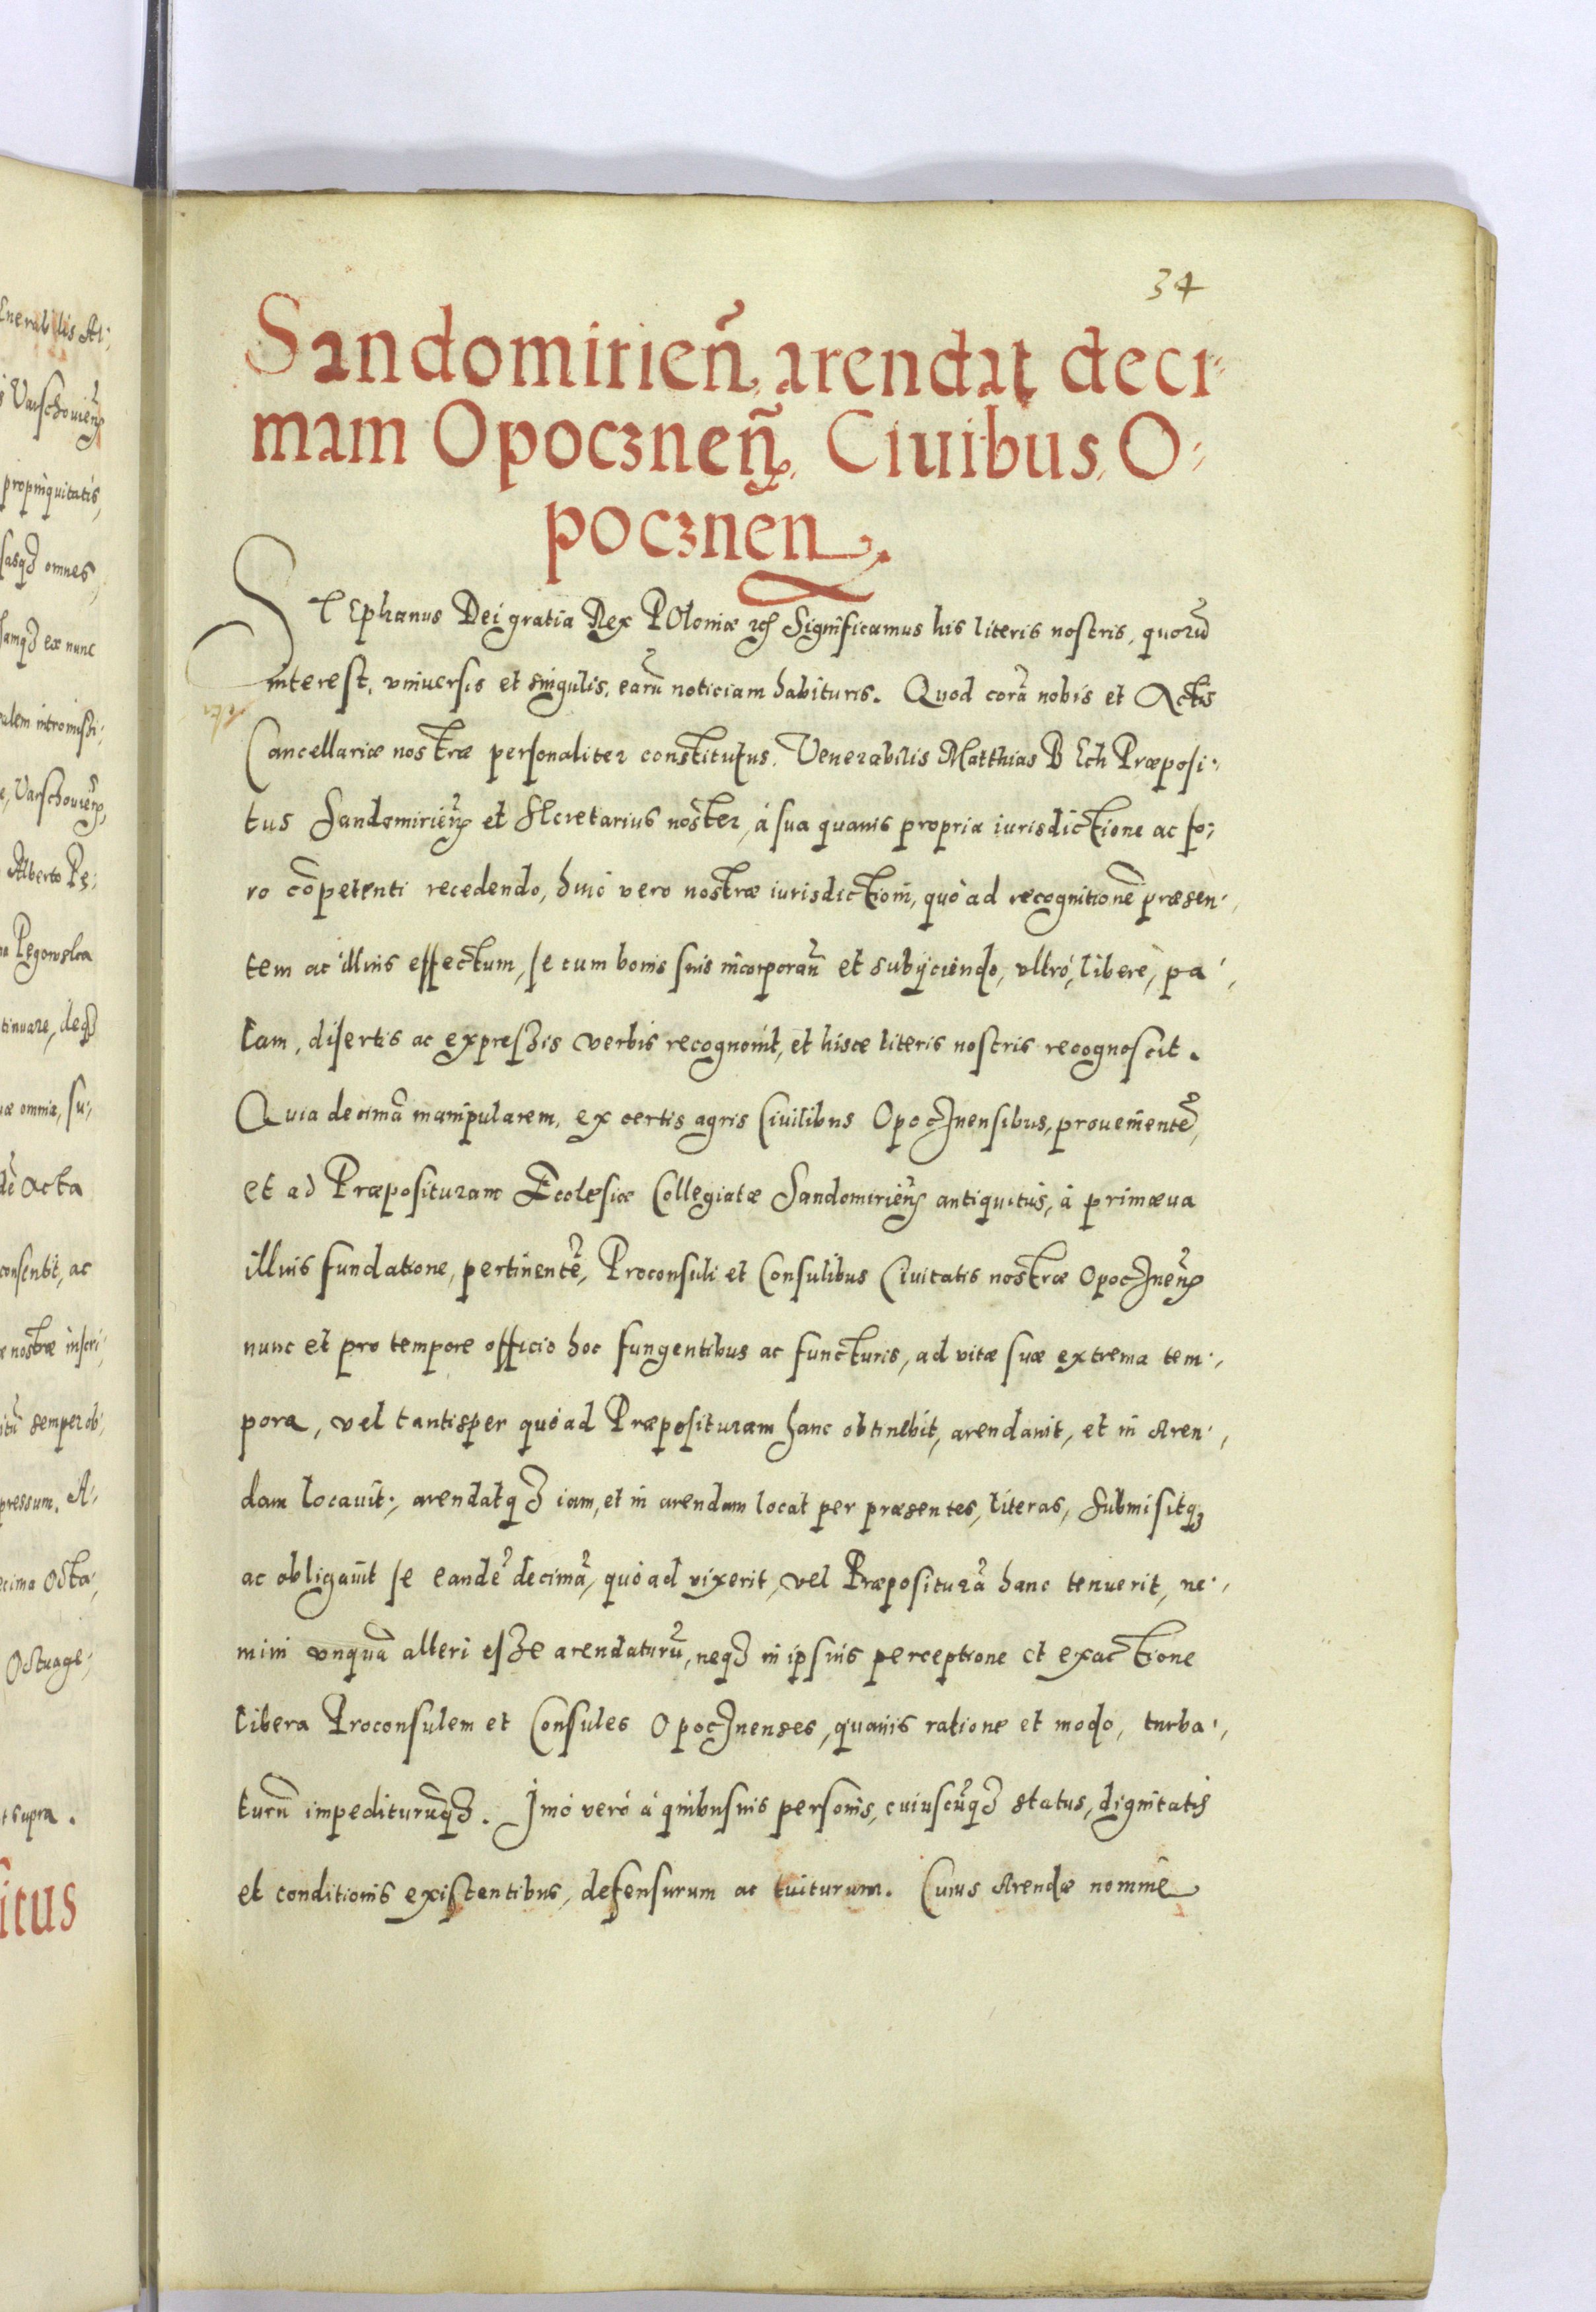 34
Sandomirień, arendat deci-
mam Opoczneń. Ciuibus, O-
poczneń.
STEphanus Dei gratia Rex POloniæ etc̃ Significamus his literis nostris, quorũ
interest, vniuersis et singulis, earũ noticiam habituris. Quod corã nobis et Actis
Cancellariæ nostræ personaliter constitutus. Venerabilis Matthias BEch Præposi-
tus Sandomirieñ et SEcretarius noster, á sua quauis propria iurisdictione ac fo-
ro cõpetenti recedendo, huic vero nostræ iurisdictioni, quò ad recognitionẽ præsen-
tem ac illius effectum, se cum bonis suis incorporañ et subijciendo, vltró, liberè, pa-
lam, disertis ac expreszis verbis recognouit, et hisce literis nostris recognoscit.
Quia decimã manipularem, ex certis agris Ciuilibus Opocznensibus, prouenientẽ,
et ad Præposituram Ecclesiæ Collegiatæ Sandomirieñ antiquitùs, á primæua
illius fundatione, pertinentẽ, Proconsuli et Consulibus Ciuitatis nostræ Opoczneñ
nunc et pro tempore officio hoc fungentibus ac functuris, ad vitæ suæ extrema tem-
pora, vel tantisper quò ad Præposituram hanc obtinebit, arendauit, et in Aren-
dam locauit, arendatq3 iam, et in arendam locat per præsentes, literas, Submisitq3
ac obligauit se eandẽ decimã, quò ad vixerit, vel Præpositurã hanc tenuerit, ne-
mini vnquã alteri esze arendaturũ, neq3 in ipsius perceptione et exactione
libera Proconsulem et Consules Opocznenses, quauis ratione et modo, turba-
turũ impediturũq3. Imó veró á quibusuis personis, cuiuscũq3 status, dignitatis
et conditionis existentibus, defensurum ac tuiturum. Cuius Arendæ nomine